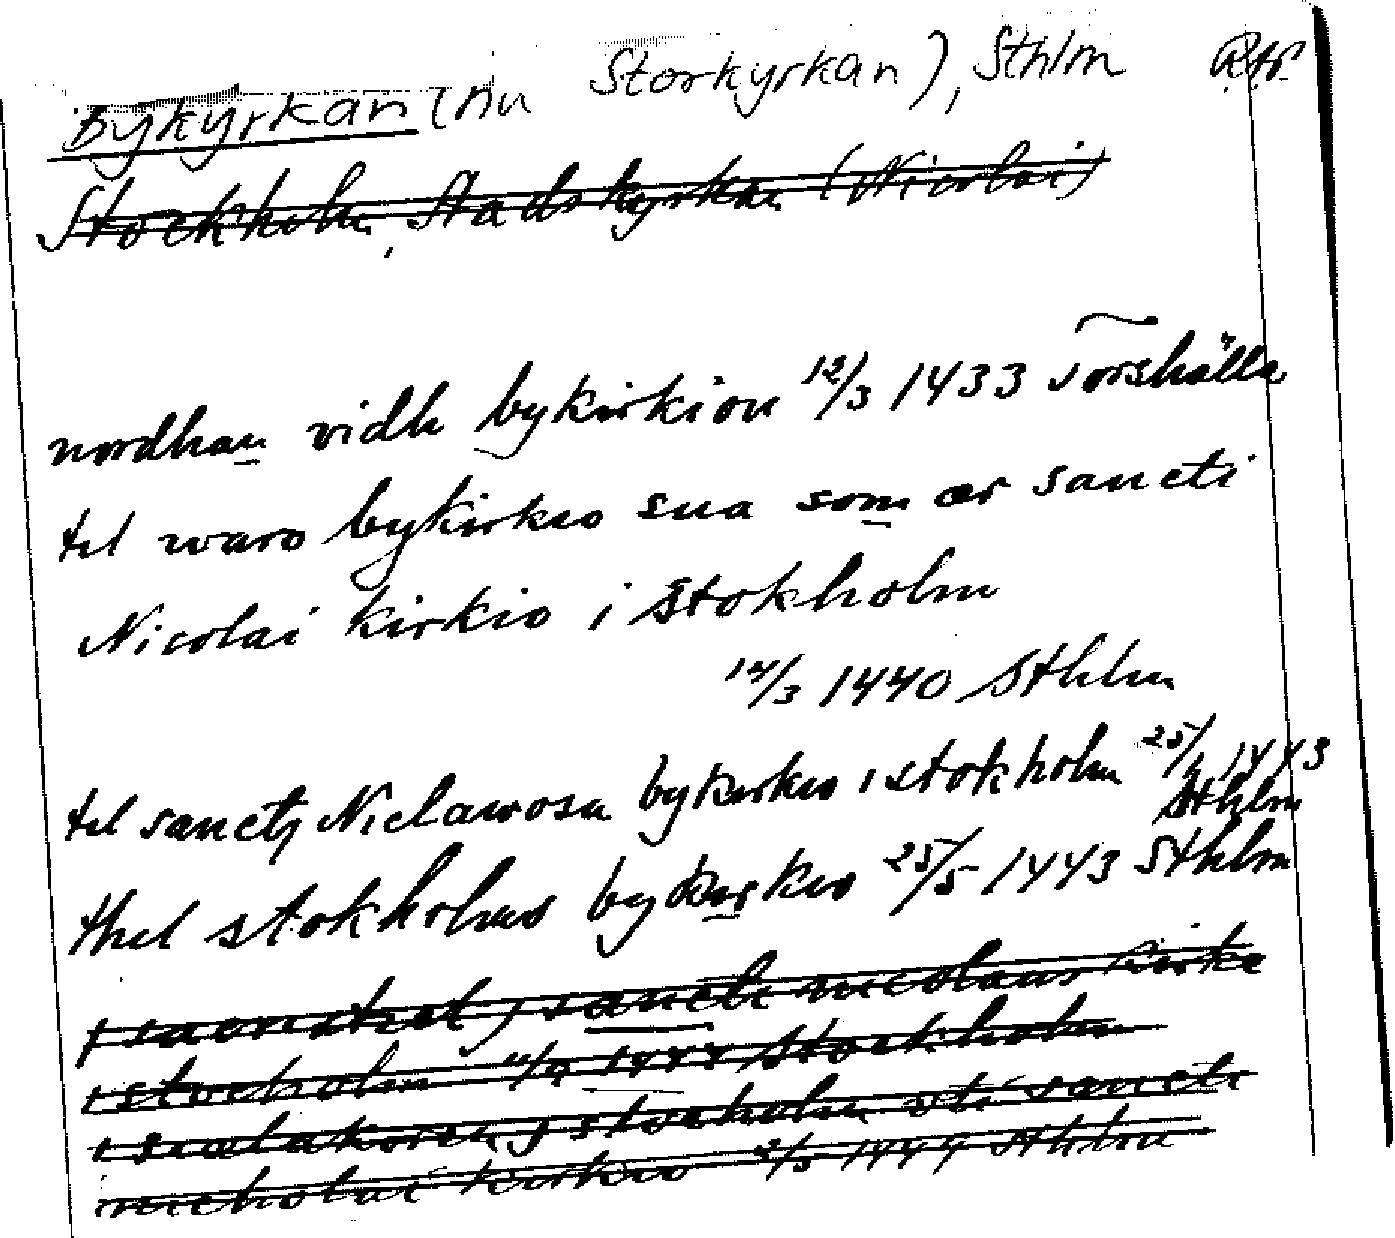 Bykyrkan (nu Storkyrkan), Sthlm
Stockholm, Stadskyrkan (Nicolai)
nordhan vidh bykirkion 12/3 1433 Torshälla
til waro bykirkio sua som ær sancti
Nicolai kirkio i Stokholm
14/3 1440 Sthlm
til sancti Niclawosa bykirkio i stokholm 25/5 1443
Sthlm
thil stokholms bykirkio 25/5 1443 Sthlm
j sancti nicolaus kirke
i stocholm 1444 Stockholm
j stocholm sti sancti
nicholai kirkio 1444 Sthlm